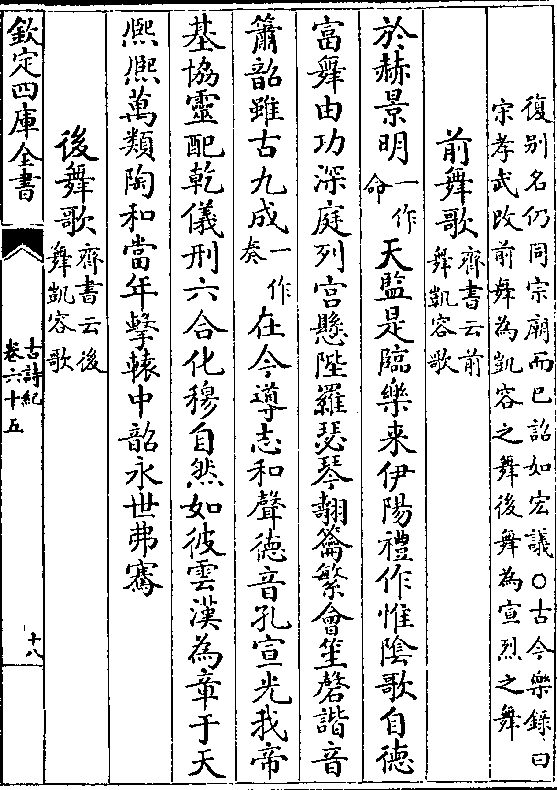 復别名仍同宗廟而已詔如宏議○古今樂録曰
宗孝武改前舞為凱容之舞後舞為宣烈之舞
前舞歌齊書云前
舞凱容歌
於赫景明一作
命天監是臨樂来伊陽禮作惟陰歌自徳
富舞由功深庭列宫懸陛羅瑟琴翿籥繁會笙磬諧音
簫韶雖古九成一作
奏在今導志和聲徳音孔宣光我帝
基協靈配乾儀刑六合化穆自然如彼雲漢為章于天
熈熈萬類陶和當年擊轅中韶永世弗騫
後舞歌齊書云後
舞凱容歌
欽定四庫全書
古詩紀
卷六十五
十八